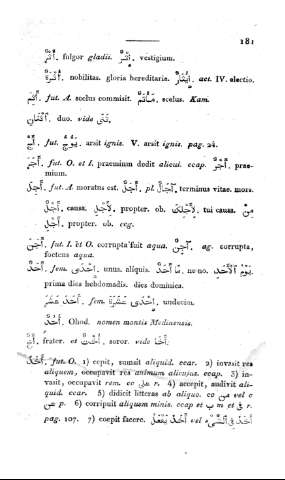 181
أُثْرٌ. fulgor gladii. إِثْرٌ. vestigium.
أُثْرَةٌ. nobilitas. gloria hereditaria. إِيثَارٌ. act. IV. electio.
أَثِمَ. fut. A. scelus commisit. مَأْثَمٌ. scelus. Kam.
إِثْنَانِ. duo. vide ثَنَى.
أَجَّ. fut. يَؤُجُّ. arsit ignis. V. arsit ignis. pag. 24.
أَجَرَ. fut. O. et I. praemium dedit alicui. ccap. أَجْرٌ. prae-
mium.
أَجِلَ. fut. A moratus est. أَجَلٌ. pl. آجَالٌ. terminus vitae. mors.
أَجْلٌ. causa. لِأَجْلِ. propter. ob. لِأَجْلِكَ. tui causa. مِنْ
أَجْلِ. propter. ob. ccg.
أَجَنَ. fut. I. et O. corrupta fuit aqua. آجِنٌ. ag. corrupta,
foetens aqua.
أَحَدٌ. fem. إِحْدَى. unus. aliquis. مَا أَحَدٌ. nemo. يَوْمُ ٱلْأَحَدِ.
prima dies hebdomadis. dies dominica.
أَحَدَ عَشَرَ. fem. إِحْدَى عَشْرَةَ. undecim.
أُحُدٌ. Ohod. nomen montis Medinensis.
أَخٌ. frater. et أُخْتٌ. soror. vide أَخَا.
أَخَذَ. fut. O. 1) cepit, sumsit aliquid. ccar. 2) invasit res
aliquem, occupavit res animum alicujus. ccap. 3) in-
vasit, occupavit rem. cc عَلَى r. 4) accepit, audivit ali-
quid. ccar. 5) didicit litteras ab aliquo. cc مِن vel
عَن p. 6) corripuit aliquem minis. ccap et ب m et فِى r.
pag. 107. 7) coepit facere. أَخَذَ يَفْعَلُ vel أَخَذَ فِى ٱلشَّىْءِ.